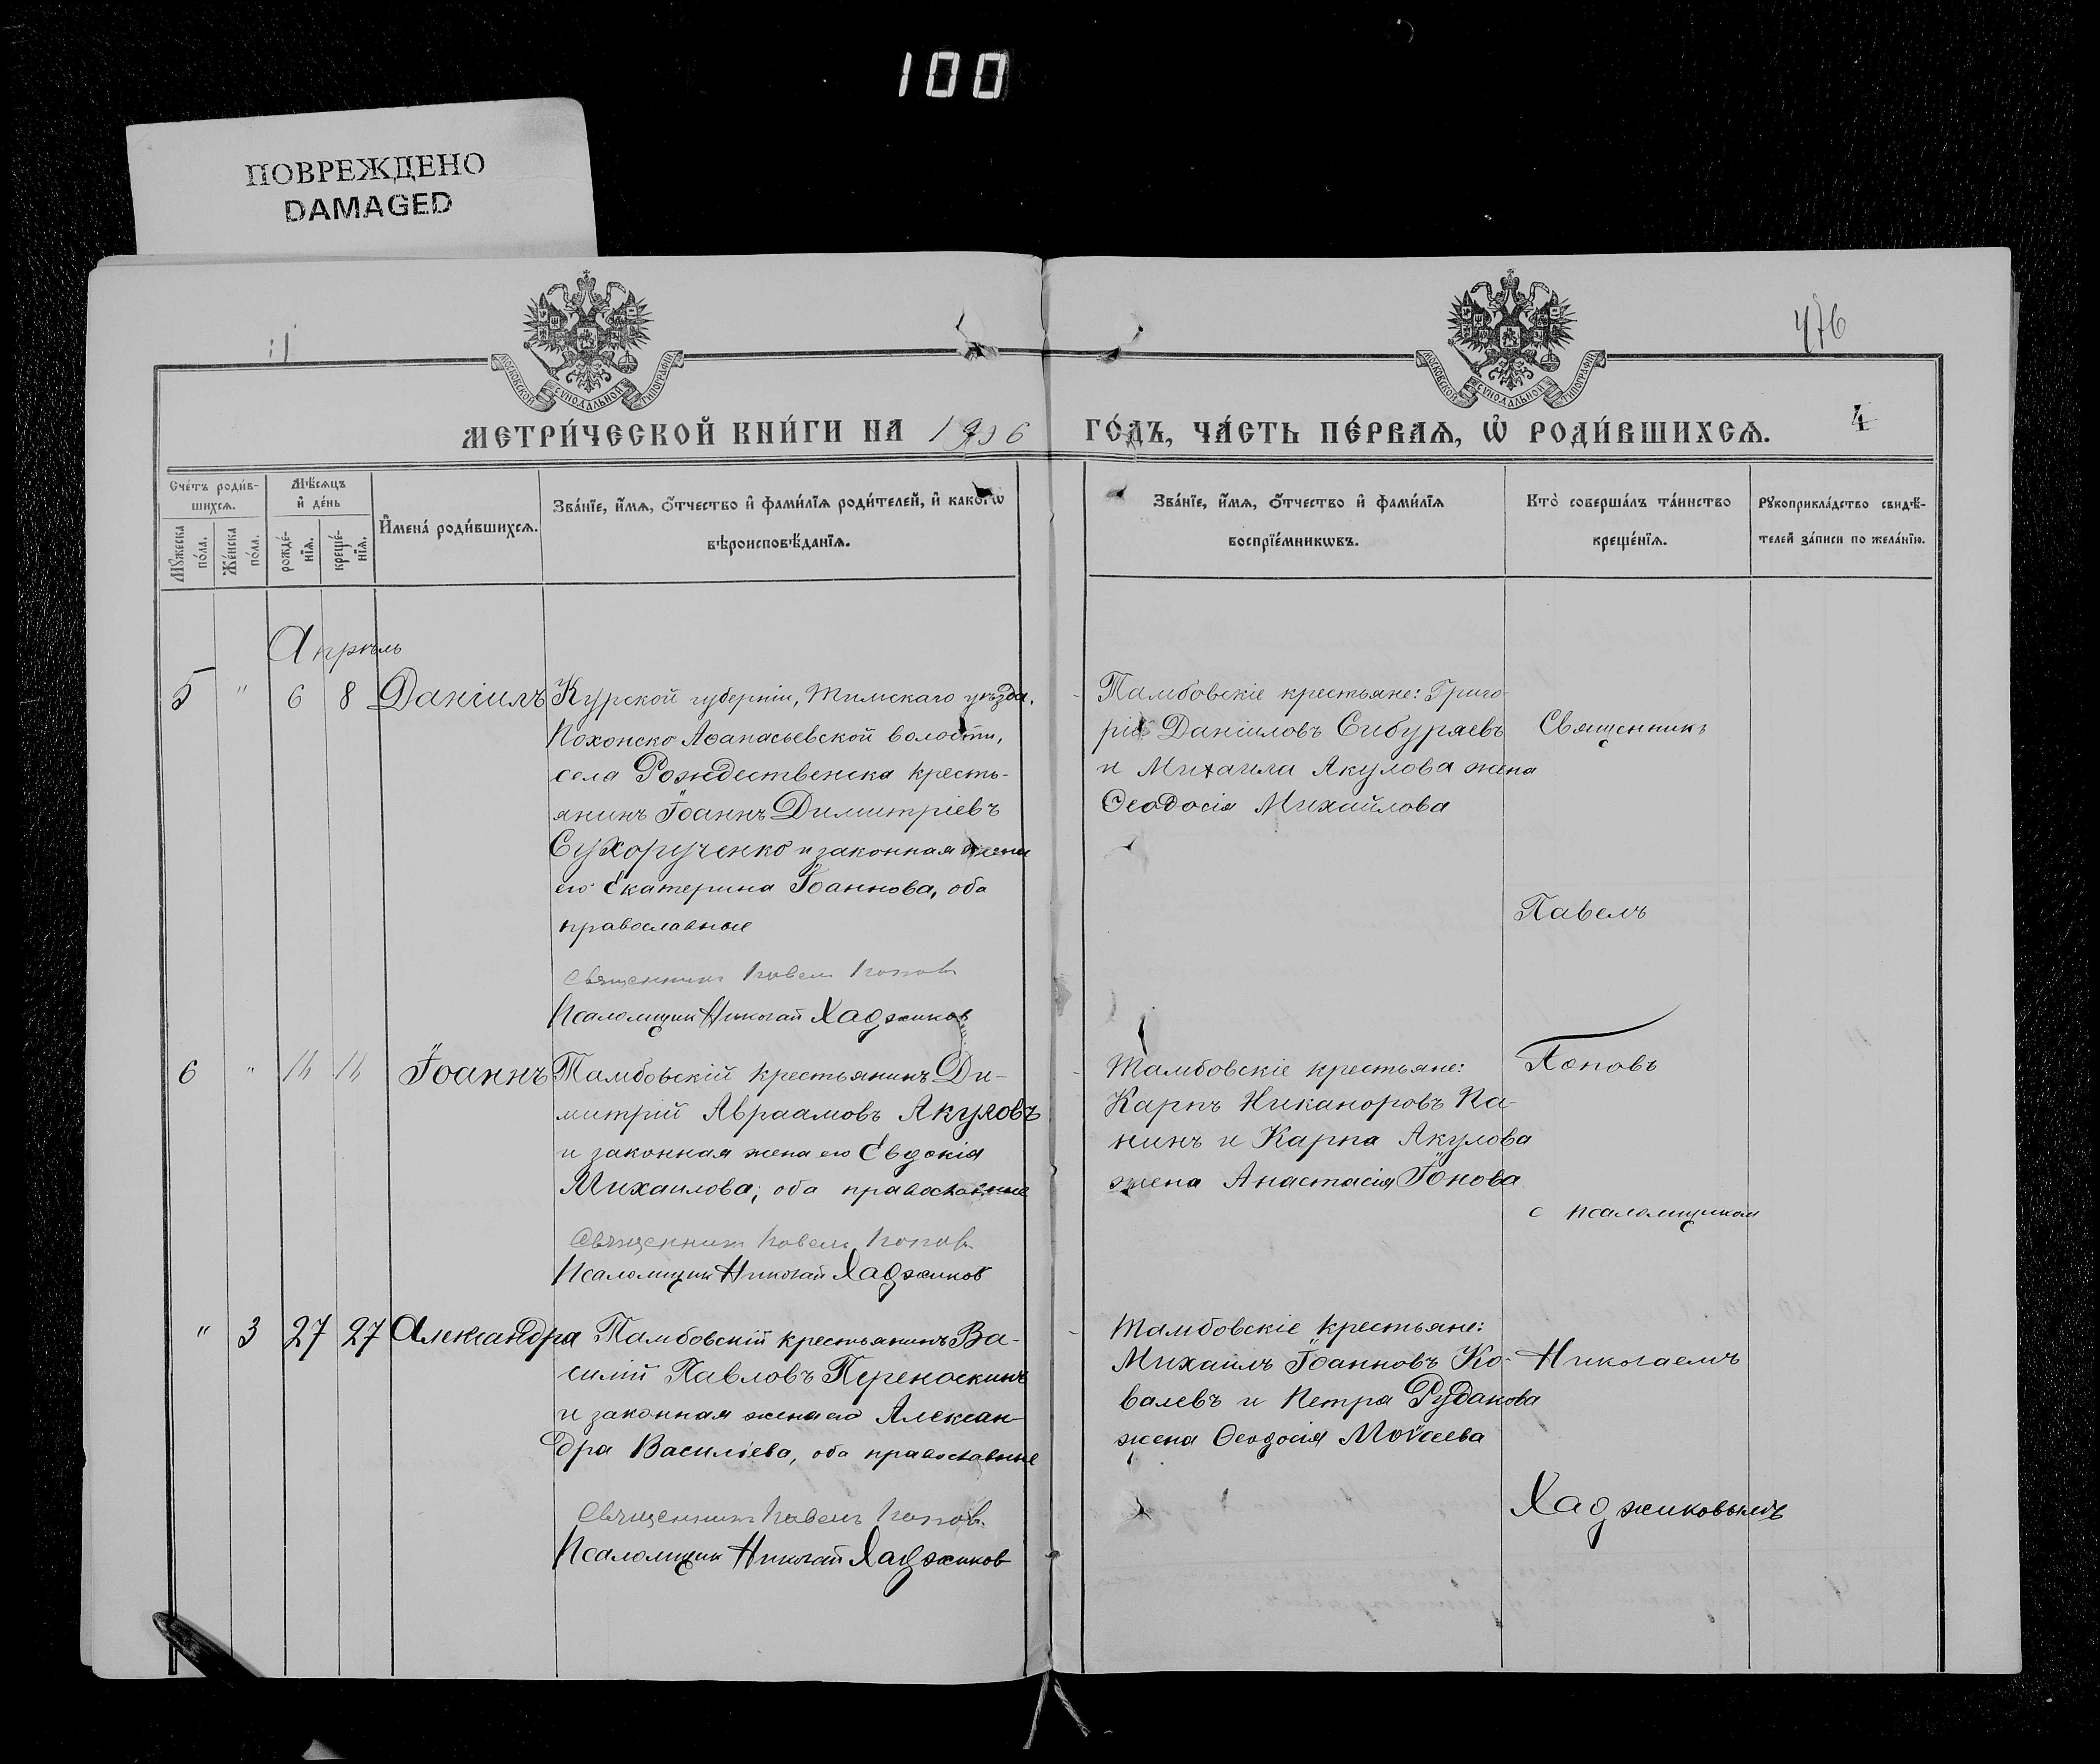 100
ПОВРЕЖДЕНО
DAMAGED
476
МОСКОВСКОЙ СУНОДАЛЬНОЙ ТИПОГРАФІИ
МОСКОВСКОЙ СУНОДАЛЬНОЙ ТИПОГРАФІИ
МЕТРИ́ЧЕСКОЙ КНИ́ГИ НА 1906 ГО́ДЪ, ЧА́СТЬ ПЕ́РВАЯ, Ѡ҆ РОДИ́ВШИХСЯ. 4
Сче́тъ роди́в-
шихся.
Мꙋ́жеска
по́ла.
Же́нска
по́ла.
Мѣ́сяцъ
и҆ де́нь
рожде́-
нїя.
креще́-
нїя.
И҆мена́ роди́вшихся.
Зва́нїе, и҆́мя, ѻ҆́тчество и҆ фами́лїя роди́телей, и҆ како́гѡ
вѣроисповѣ́данїя.
Зва́нїе, и҆́мя, ѻ҆́тчество и҆ фами́лїя
воспрїе́мникѡвъ.
Кто̀ соверша́лъ та́инство
креще́нїя.
Рꙋкоприкла́дство свидѣ́-
телей за́писи по жела́нїю.
Апрѣль
5 " 6 8 Даніилъ
Курской губерніи, Тимскаго уѣзда,
Афанасьевской волости,
села Рождественска кресть-
янинъ Іоаннъ Димитріевъ
Сухорученко и законная жена
его Екатерина Іоаннова, оба
православные
Священникъ Павелъ Поповъ
Псаломщик Николай Хаджиков
Тамбовскіе крестьяне: Григо-
рій Даніиловъ Сибуряевъ
и Михаила Акулова жена
Ѳеодосія Михайлова
Священникъ
Павелъ
6 " 14 14 Іоаннъ
Тамбовскій крестьянинъ Ди-
митрій Авраамовъ Акуловъ
и законная жена его Евдокія
Михаилова, оба православные
Священникъ Павелъ Поповъ
Псаломщик Николай Хаджиков
Тамбовскіе крестьяне:
Карпъ Никаноровъ Па-
нинъ и Карпа Акулова
жена Анастасія Іонова
Поповъ
с псаломщиком
" 3 27 27 Александра
Тамбовскій крестьянинъ Ва-
силій Павловъ Переноскинъ
и законная жена его Алексан-
дра Василіева, оба православные
Священникъ Павелъ Поповъ
Псаломщик Николай Хаджиков
Тамбовскіе крестьяне:
Михаилъ Іоанновъ Ко-
валевъ и Петра Рудакова
жена Ѳеодосія Моѵсеева
Николаемъ
Хаджиковымъ